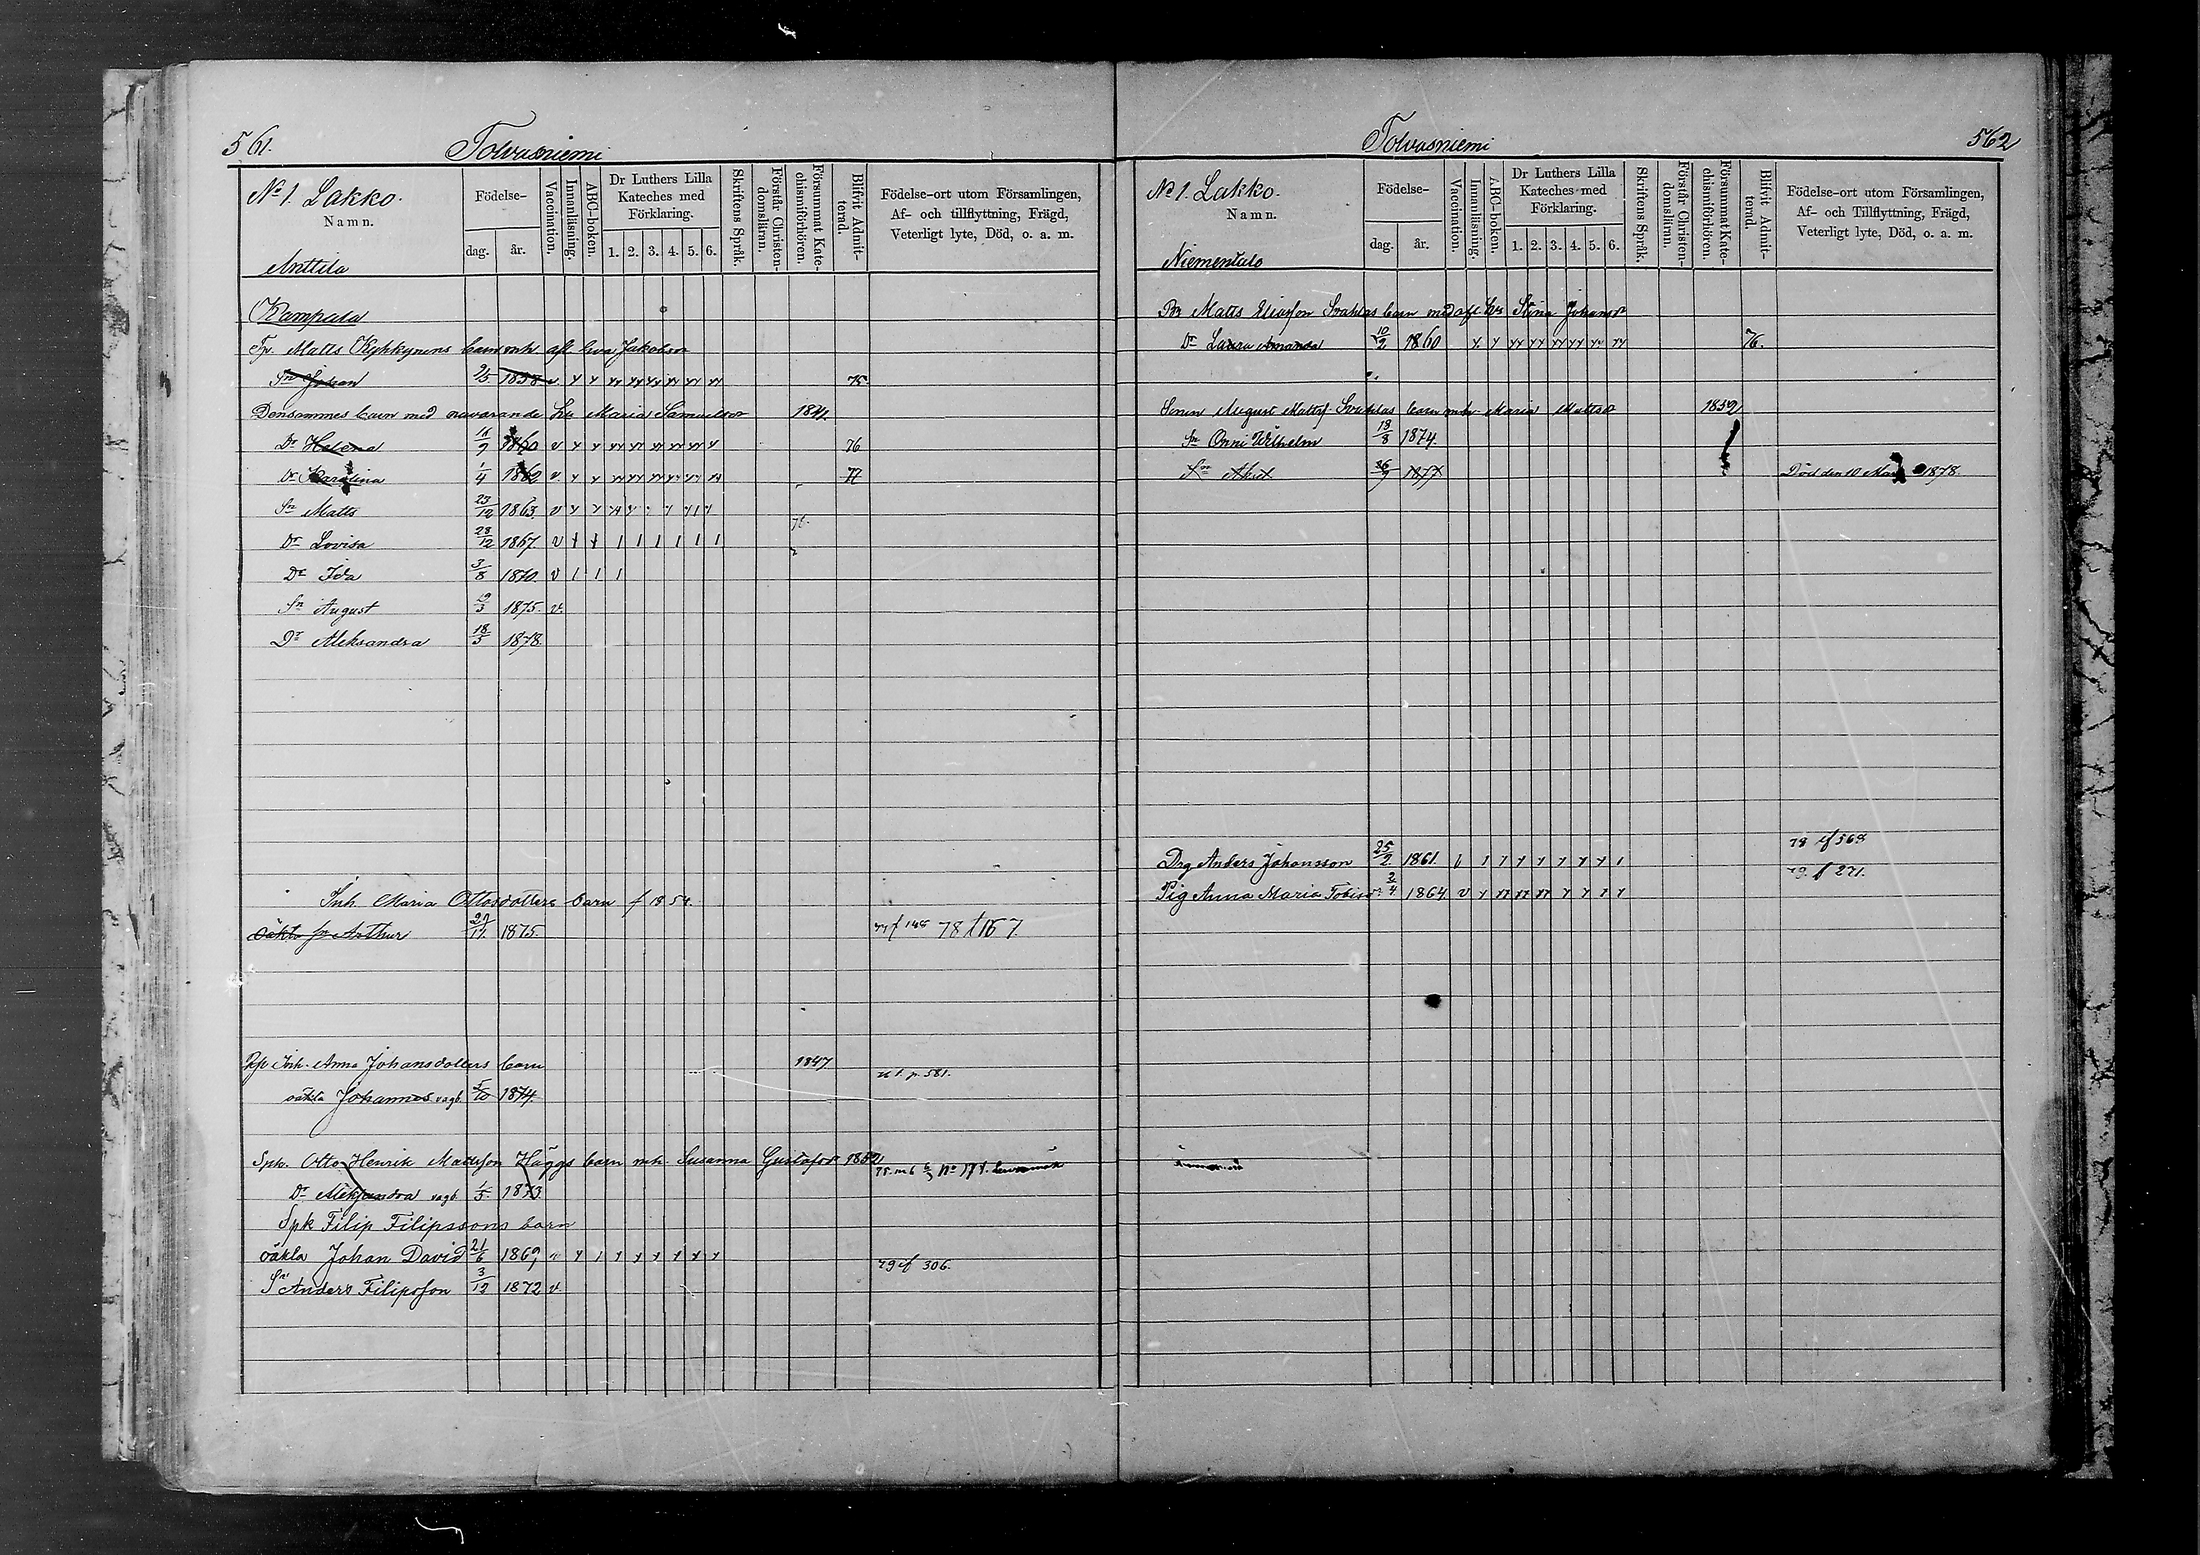 561.
Tolvasniemi
No 1. Lakko.
Namn.
Anttila
Födelse-
dag.
år.
Vaccination.
Innanläsning.
ABC-boken.
Dr Luthers Lilla
Kateches med
Förklaring.
1. 2. 3. 4. 5. 6.
Skriftens Språk.
Förstår Christen-
domsläran.
Försummat Kate-
chismiförhören.
Blifvit Admit-
terad.
Födelse-ort utom Församlingen,
Af- och tillflyttning, Frägd,
Veterligt lyte, Död, o. a. m.
Kampala
Tp. Matts barn mh afl Eva Jakobsdr
Sn Johan 9/5 1858 v. 75.
Densammes barn med nuvarande hu Maria Samuelsdr 1841.
Dr Helena 1860 v 76
Dr Karolina 1/4 1862 v. 77
Sn Matts 23/12 1863. v
Dr Lovisa 28/12 1867. v
Dr Ida 3/8 1870. v
Sn August 29/3 1875. v.
Dr Aleksandra 18/5 1878.
Inh. Maria Ottosdotters barn f 185
oäkta sn Arthur 1875. 77 f 148 78 f 157
Inh. Anna Johansdotters barn 1847
p. 581.
oäkta Johannes vagb. 5/10 1874.
Spk. Otto Henrik Mattsson Häggs barn mh. Susanna Gustafsdr 1852
Dr Aleksandra vagb. 1873
Spk Filip Filipssons barn
oäkta Johan David 21/6 1869
79 f 306.
Sn Anders Filipsson 3/12 1872 v.
Tolvasniemi
562
No 1. Lakko.
Namn.
Niementalo
Födelse-
dag.
år.
Vaccination.
Innanläsning.
ABC-boken.
Dr Luthers Lilla
Kateches med
Förklaring.
1. 2. 3. 4. 5. 6.
Skriftens Språk.
Förstår Christen-
domsläran.
Försummat Kate-
chismiförhören.
Blifvit Admit-
terad.
Födelse-ort utom Församlingen,
Af- och Tillflyttning, Frägd,
Veterligt lyte, Död, o. a. m.
Matts Eliasson Svahlas barn med afl hu Stina Johansdr
Dr Laura Amanda 10/2 1860 76.
Sonen August Mattss. Svahlas barn mh Maria Mattsdr 1852
Sn Onni Wilhelm 18/8 1874.
Sn Axel 26/9 1877 Död den 10 1878.
78 f 568
Drg Anders Johansson 25/2 1861.
79. f 271.
Pig Anna Maria Tobiasdr 2/4 1864. v